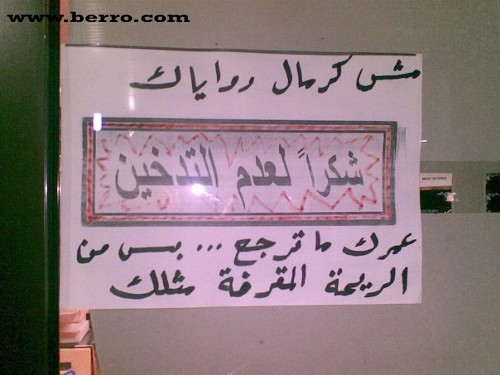 www.berro.com
مش كرمال روايك
شكراً لعدم التدخين
عمرك ما ترجع ... بس من
الريحة المقرفة مثلك